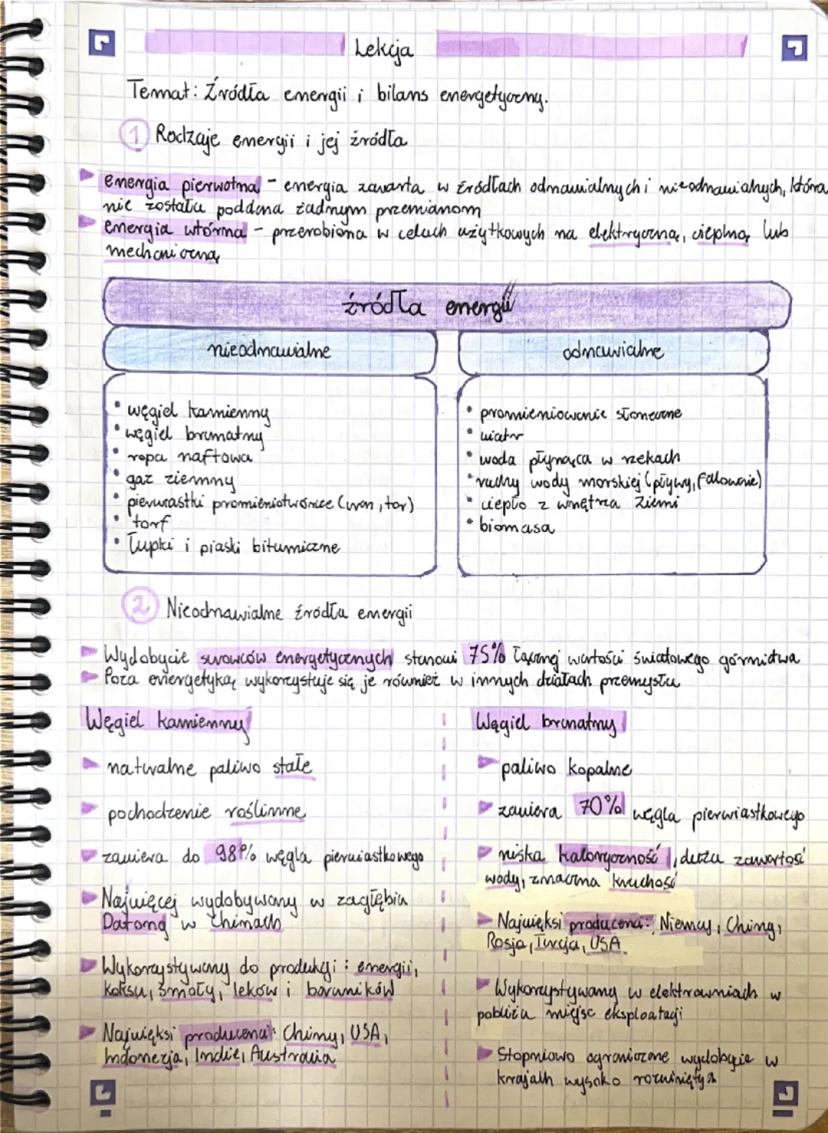 Lekcja
Temat: Źródła energii i bilans energetyczny.
1 Rodzaje energii i jej źródła
energia pierwotna - energia zawarta w źródłach odnawialnych i nieodnawialnych, która
nie została poddana żadnym przemianom
energia wtórna - przerobiona w celach użytkowych na elektryczną, cieplną lub
mechaniczną
źródła energii
nieodnawialne
• węgiel kamienny
• węgiel brunatny
• ropa naftowa
• gaz ziemny
• pierwiastki promieniotwórcze (uran, tor)
• torf
• łupki i piaski bitumiczne
odnawialne
• promieniowanie słoneczne
• wiatr
• woda płynąca w rzekach
• ruchy wody morskiej (pływy, falowanie)
• ciepło z wnętrza ziemi
• biomasa
2 Nieodnawialne źródła energii
Wydobycie surowców energetycznych stanowi 75% łącznej wartości światowego górnictwa
Poza energetyką wykorzystuje się je również w innych działach przemysłu
Węgiel kamienny
naturalne paliwo stałe
pochodzenie roślinne
zawiera do 98% węgla pierwiastkowego
Najwięcej wydobywany w zagłębiu
Datong w Chinach
Wykorzystywany do produkcji: energii,
koksu, smoły, leków i barwników
Najwięksi producenci: Chiny, USA,
Indonezja, Indie, Australia
Węgiel brunatny
paliwo kopalne
zawiera 70% węgla pierwiastkowego
niska kaloryczność, duża zawartość
wody, znaczna kruchość
Najwięksi producenci: Niemcy, Chiny,
Rosja, Turcja, USA
Wykorzystywany w elektrowniach w
pobliżu miejsc eksploatacji
Stopniowo ograniczone wydobycie w
krajach wysoko rozwiniętych